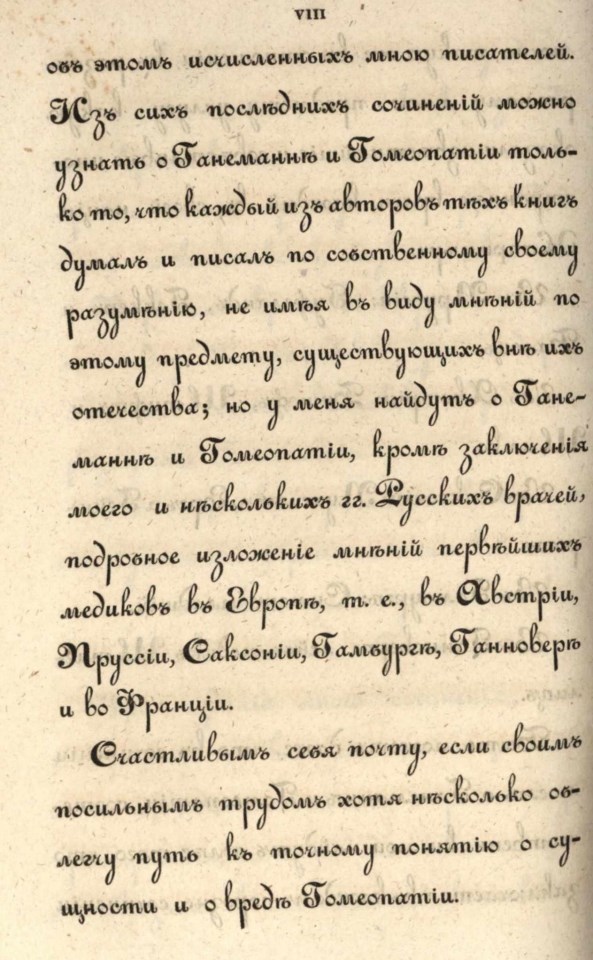 VIII
объ этомъ исчисленныхъ мною писателей.
Изъ сихъ послѣднихъ сочиненій можно
узнать о Ганеманнѣ и Гомеопатіи толь-
ко то, что каждый изъ авторовъ тѣхъ книгъ
думалъ и писалъ по собственному своему
разумѣнію, не имѣя въ виду мнѣній по
этому предмету, существующихъ внѣ ихъ
отечества; но у меня найдутъ о Гане-
маннѣ и Гомеопатіи, кромѣ заключенія
моего и нѣсколькихъ гг. Русскихъ врачей,
подробное изложеніе мнѣній первѣйшихъ
медиковъ въ Европѣ, т. е., въ Австріи,
Пруссіи, Саксоніи, Гамбургѣ, Ганноверѣ
и во Франціи.
Счастливымъ себя почту, если своимъ
посильнымъ трудомъ хотя нѣсколько об-
легчу путь къ точному понятію о су-
щности и о вредѣ Гомеопатіи.